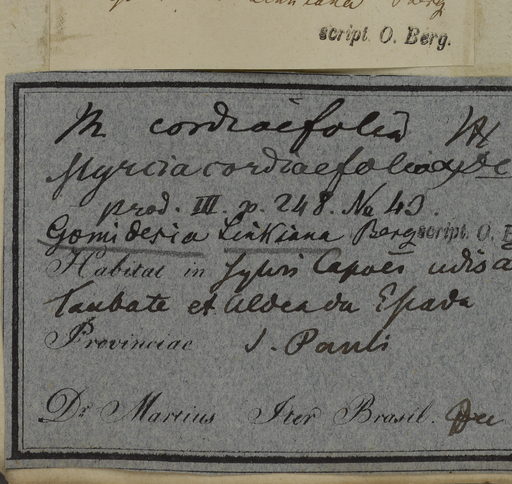 Linkiana Berg
script. O. Berg.
M cordiaefolia
Myrcia cordiaefolia
prod. III. p. 248. No 43.
Gomidesia Linkiana Berg script. O. B
Habitat in sylvis Capoës udis
Taubate et Aldea da Espada
Provinciae S. Pauli
Dr. Martius Iter Brasil.